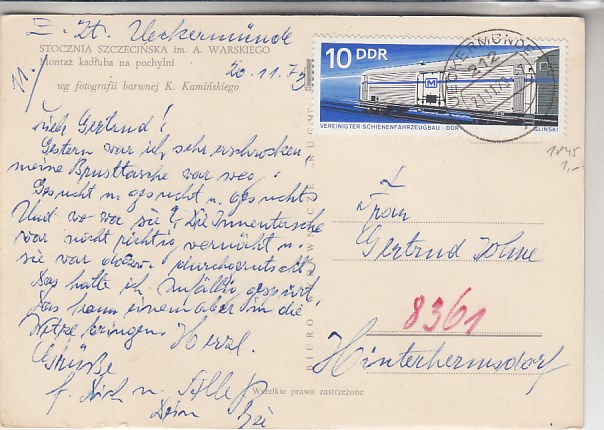 z. Zt. Ueckermünde
STOCZNIA SZCZECIŃSKA im. A. WARSKIEGO
Montaż kadłuba na pochylni
11.)
20.11.73
wg fotografii barwnej K. Kamińskiego
10 DDR
M
VEREINIGTER SCHIENENFAHRZEUGBAU · DDR
GLINSKI
UECKERMÜNDE
212
21.11.73
1845
1,-
Gertrud!
Gestern war ich sehr erschrocken
meine Brusttasche war weg!
Gesucht u. gesucht u. gesucht.
Und wo war sie? Die Innentasche
war nicht richtig vernäht u.
sie war durchgerutscht.
Das hatte ich zufällig gespürt.
Das kann einem aber in die
bringen. Herzl.
Grüße
f. Dich u.
Dein
Frau
Gertrud Johne
8361
Hinterhermsdorf
BIURO
Wszelkie prawa zastrzeżone